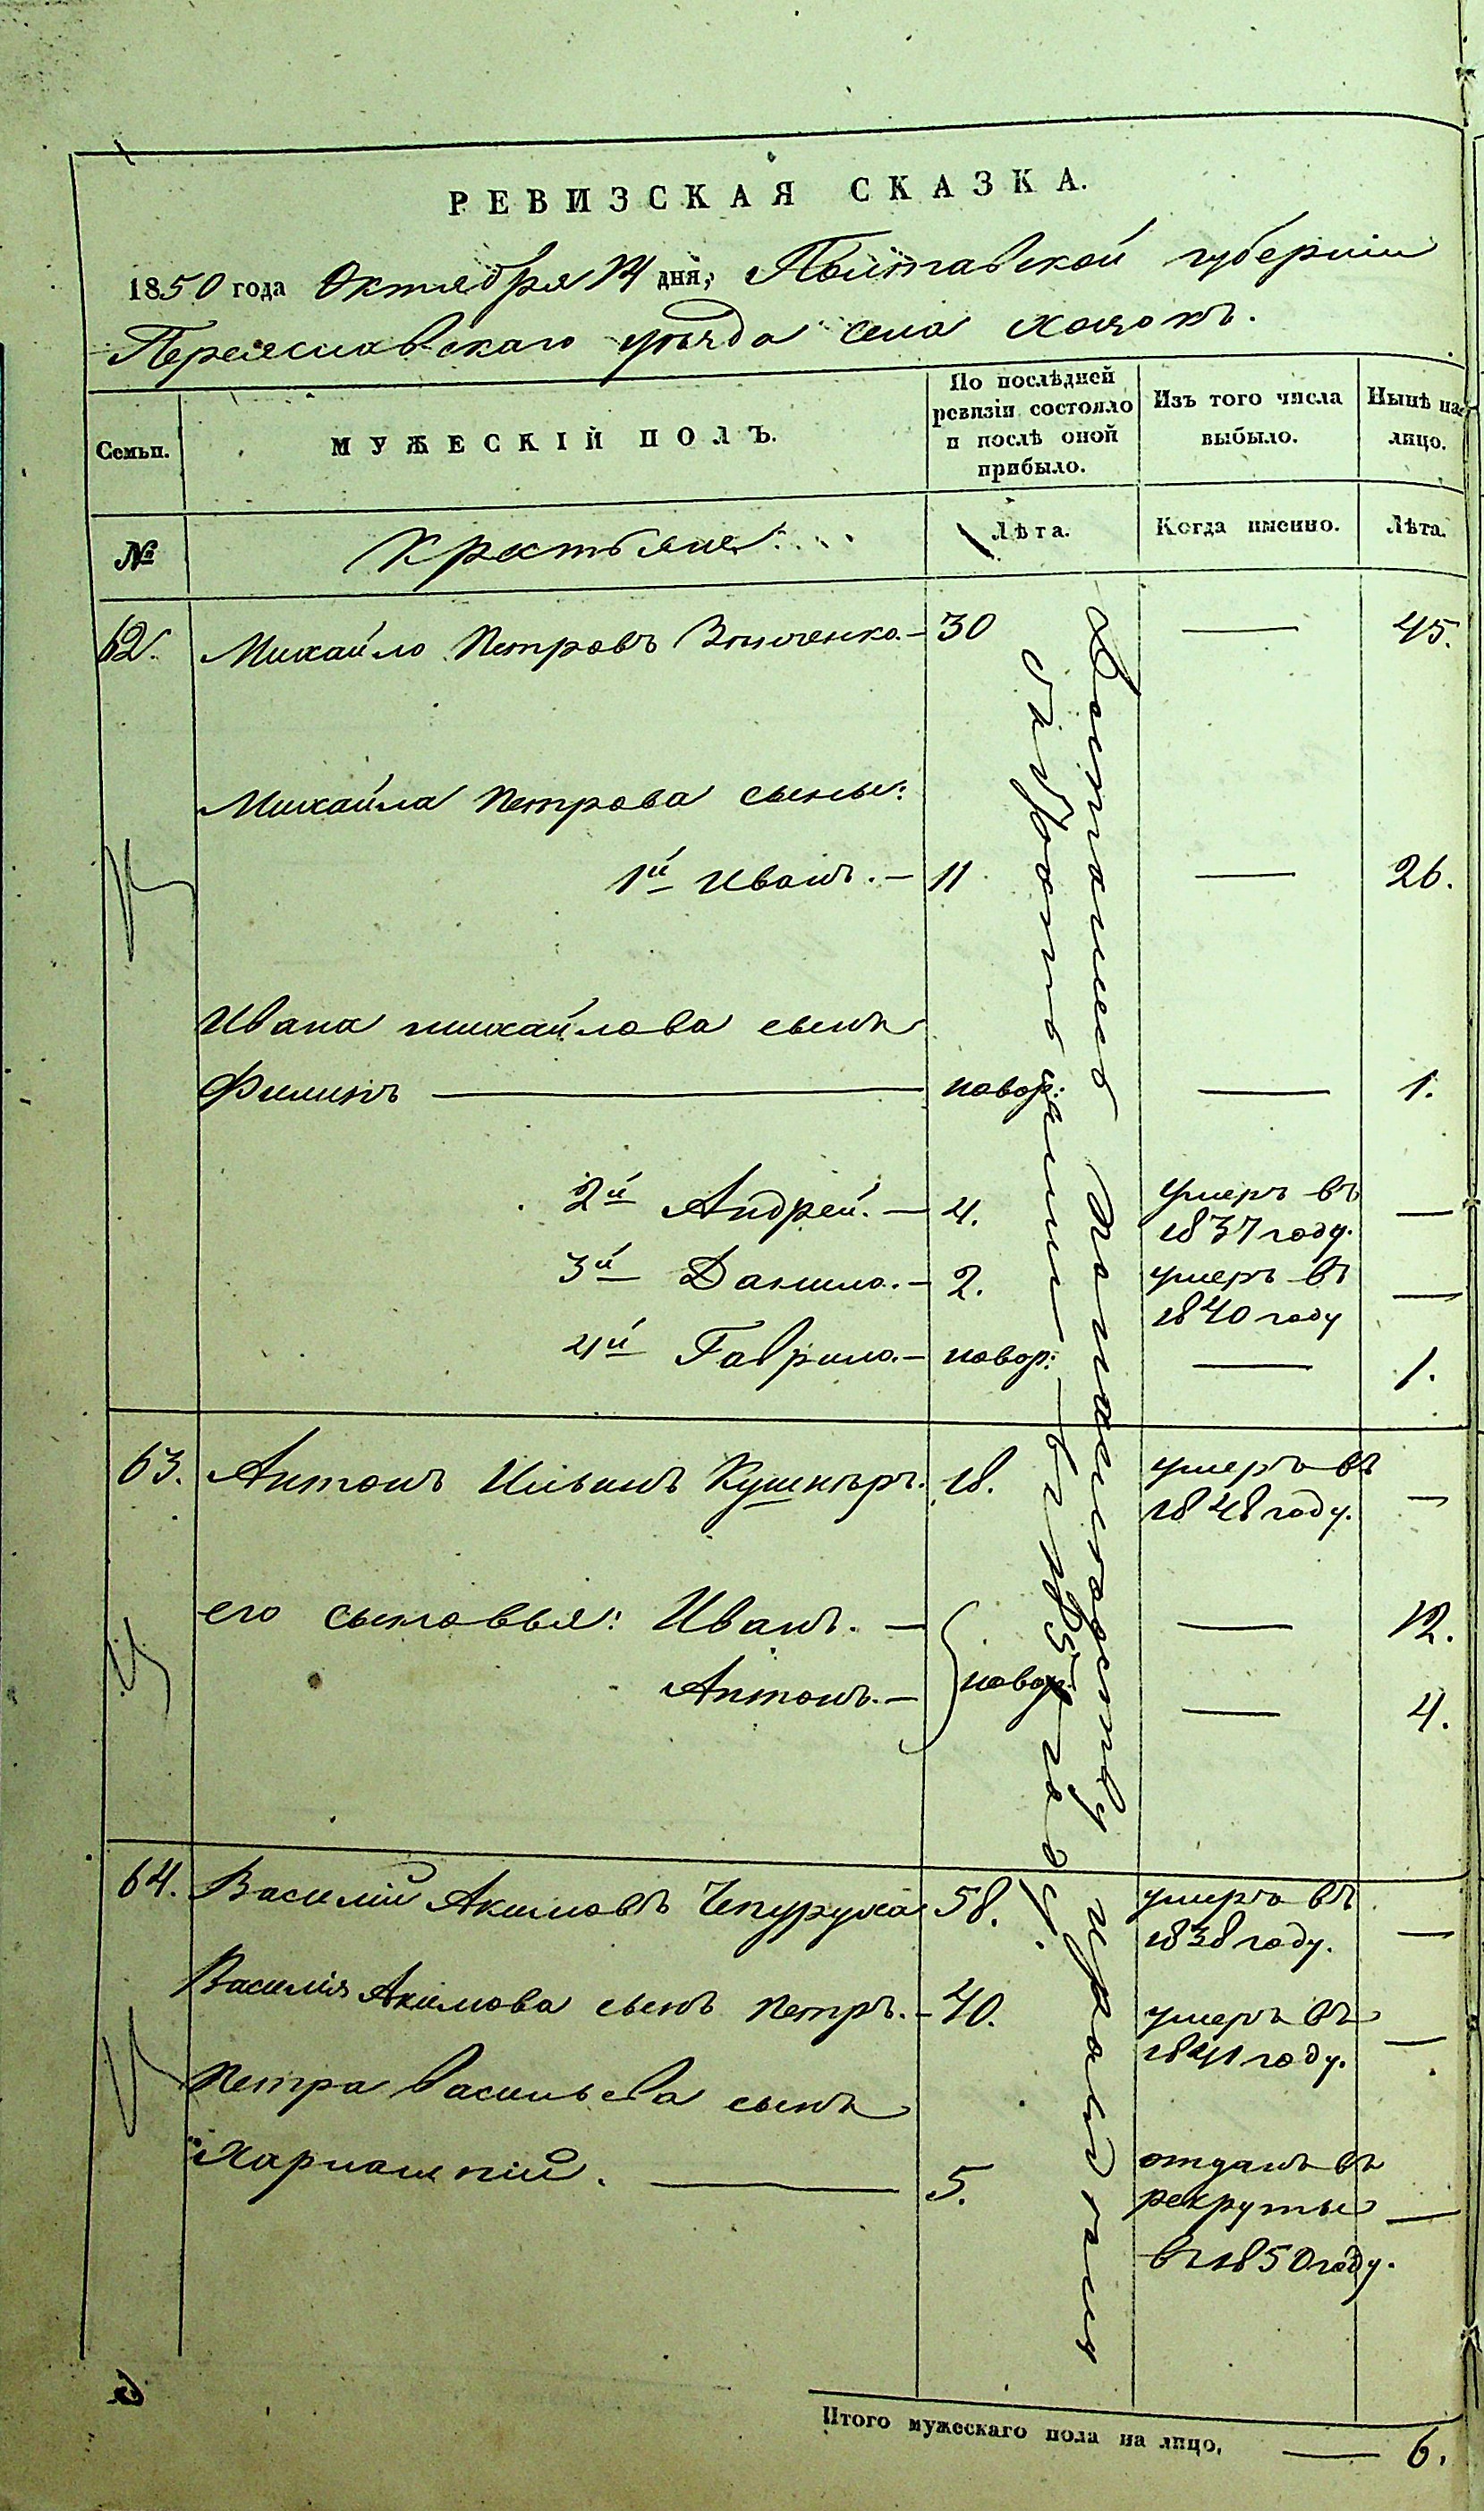 РЕВИЗСКАЯ СКАЗКА.
1850 года Октября 14 дня, Полтавской губернии
Переяславскаго уѣзда села Хоцокъ.
Семьи.
МУЖЕСКІЙ ПОЛЪ.
По послѣдней ревизіи состояло и послѣ оной прибыло.
Изъ того числа выбыло.
Нынѣ на лицо.
№
Крестьяне
Лѣта.
Когда именно.
Лѣта.
62. Михайло Петровъ — 30 — 45.
Михайла Петрова сыны:
1й Иванъ. — 11 — 26.
Ивана Михайлова сынъ
Филипъ — новор: — 1.
2й Андрей. — 4. умеръ въ 1837 году. —
3й Данило. — 2. умеръ въ 1840 году —
4й Гаврило. — новор: — 1.
63. Антонъ Ильинъ Кушниръ. 18. умеръ въ 1848 году. —
его сыновья: Иванъ. — новор: — 12.
Антонъ. — — 4.
64. Василій Акимовъ Чепуруха 58. умеръ въ 1838 году. —
Василія Акимова сынъ Петръ. — 40. умеръ въ 1841 году. —
Петра Васильева сынъ
Харлампій. — 5. отданъ въ рекруты въ 1850 году. —
Досталось по наслѣдству
въ 1835 году.
Итого мужескаго пола на лицо, — 6.